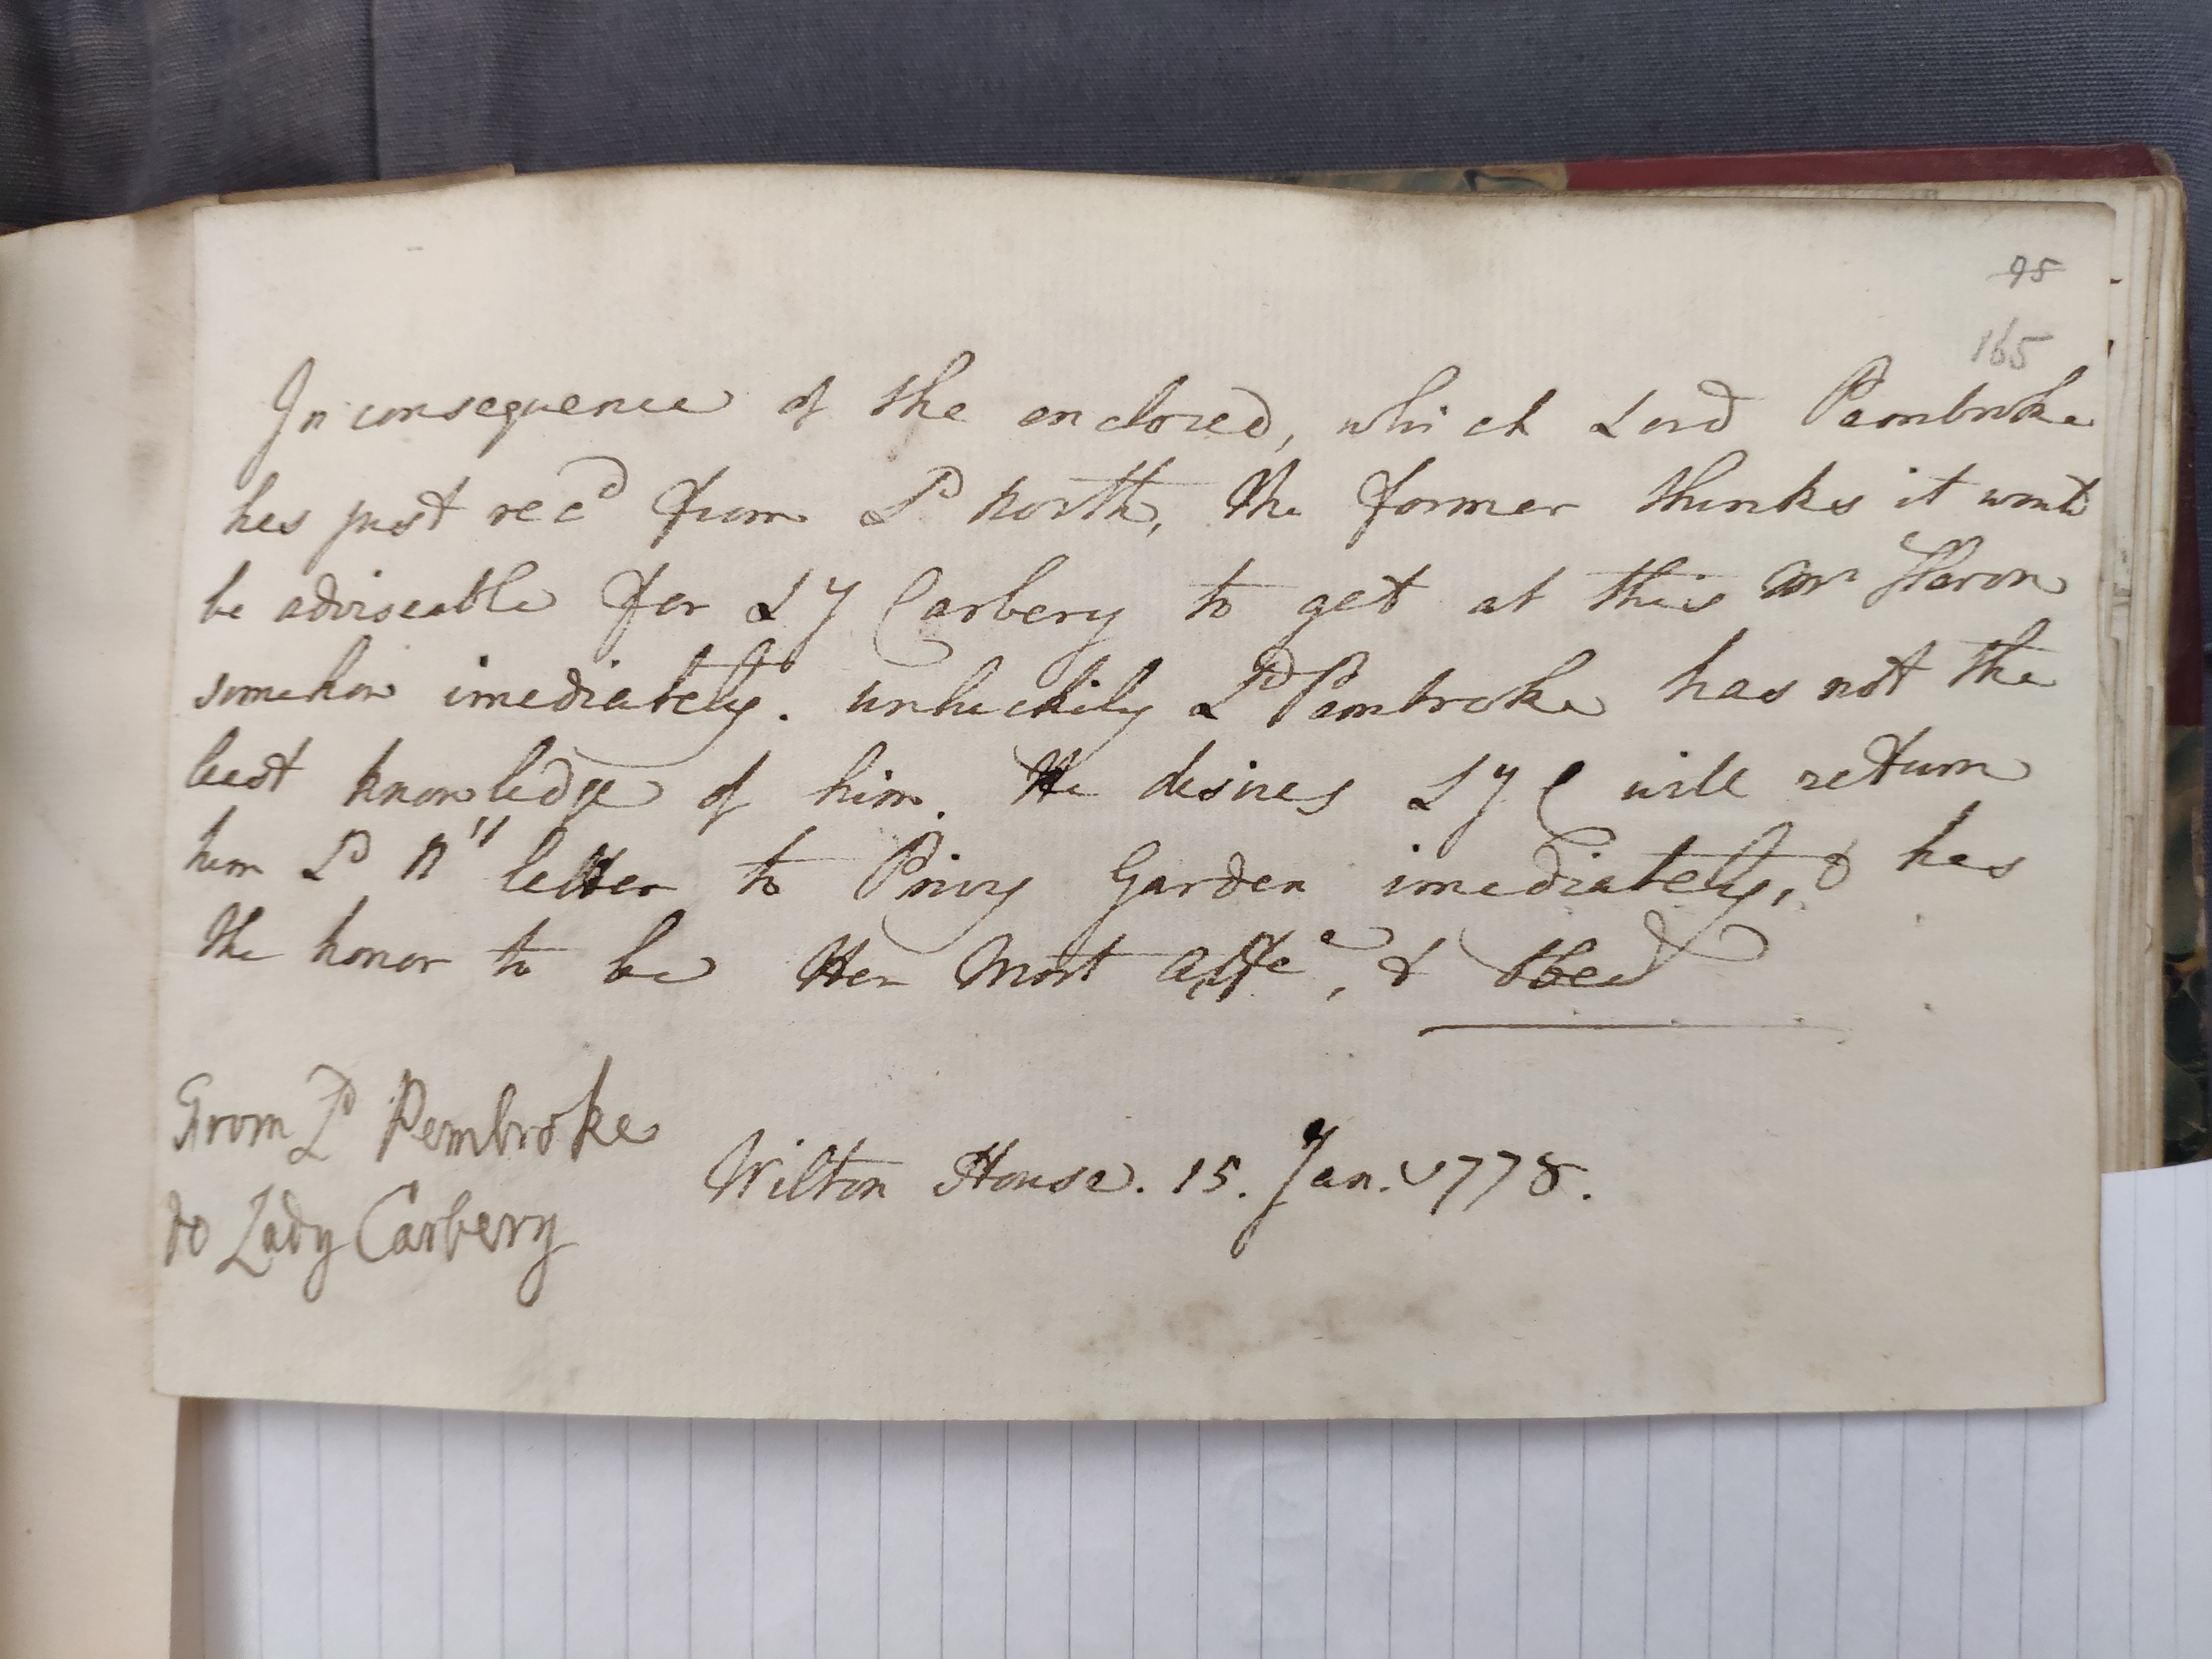 95
165
In consequence of the enclosed, which Lord Pembroke
has just rec^d from L^d North, the former thinks it would
be adviseable for L^y Carbery to get at this M^r Heron
somehow imediately. Unluckily L^d Pembroke has not the
least knowledge of him. He desires L^y C will return
him L^d N'^s letter to Privy Garden imediately, & has
the honor to be Her most affe^te, & obed^t
From L^d Pembroke
to Lady Carbery
Wilton House. 15. Jan. 1778.